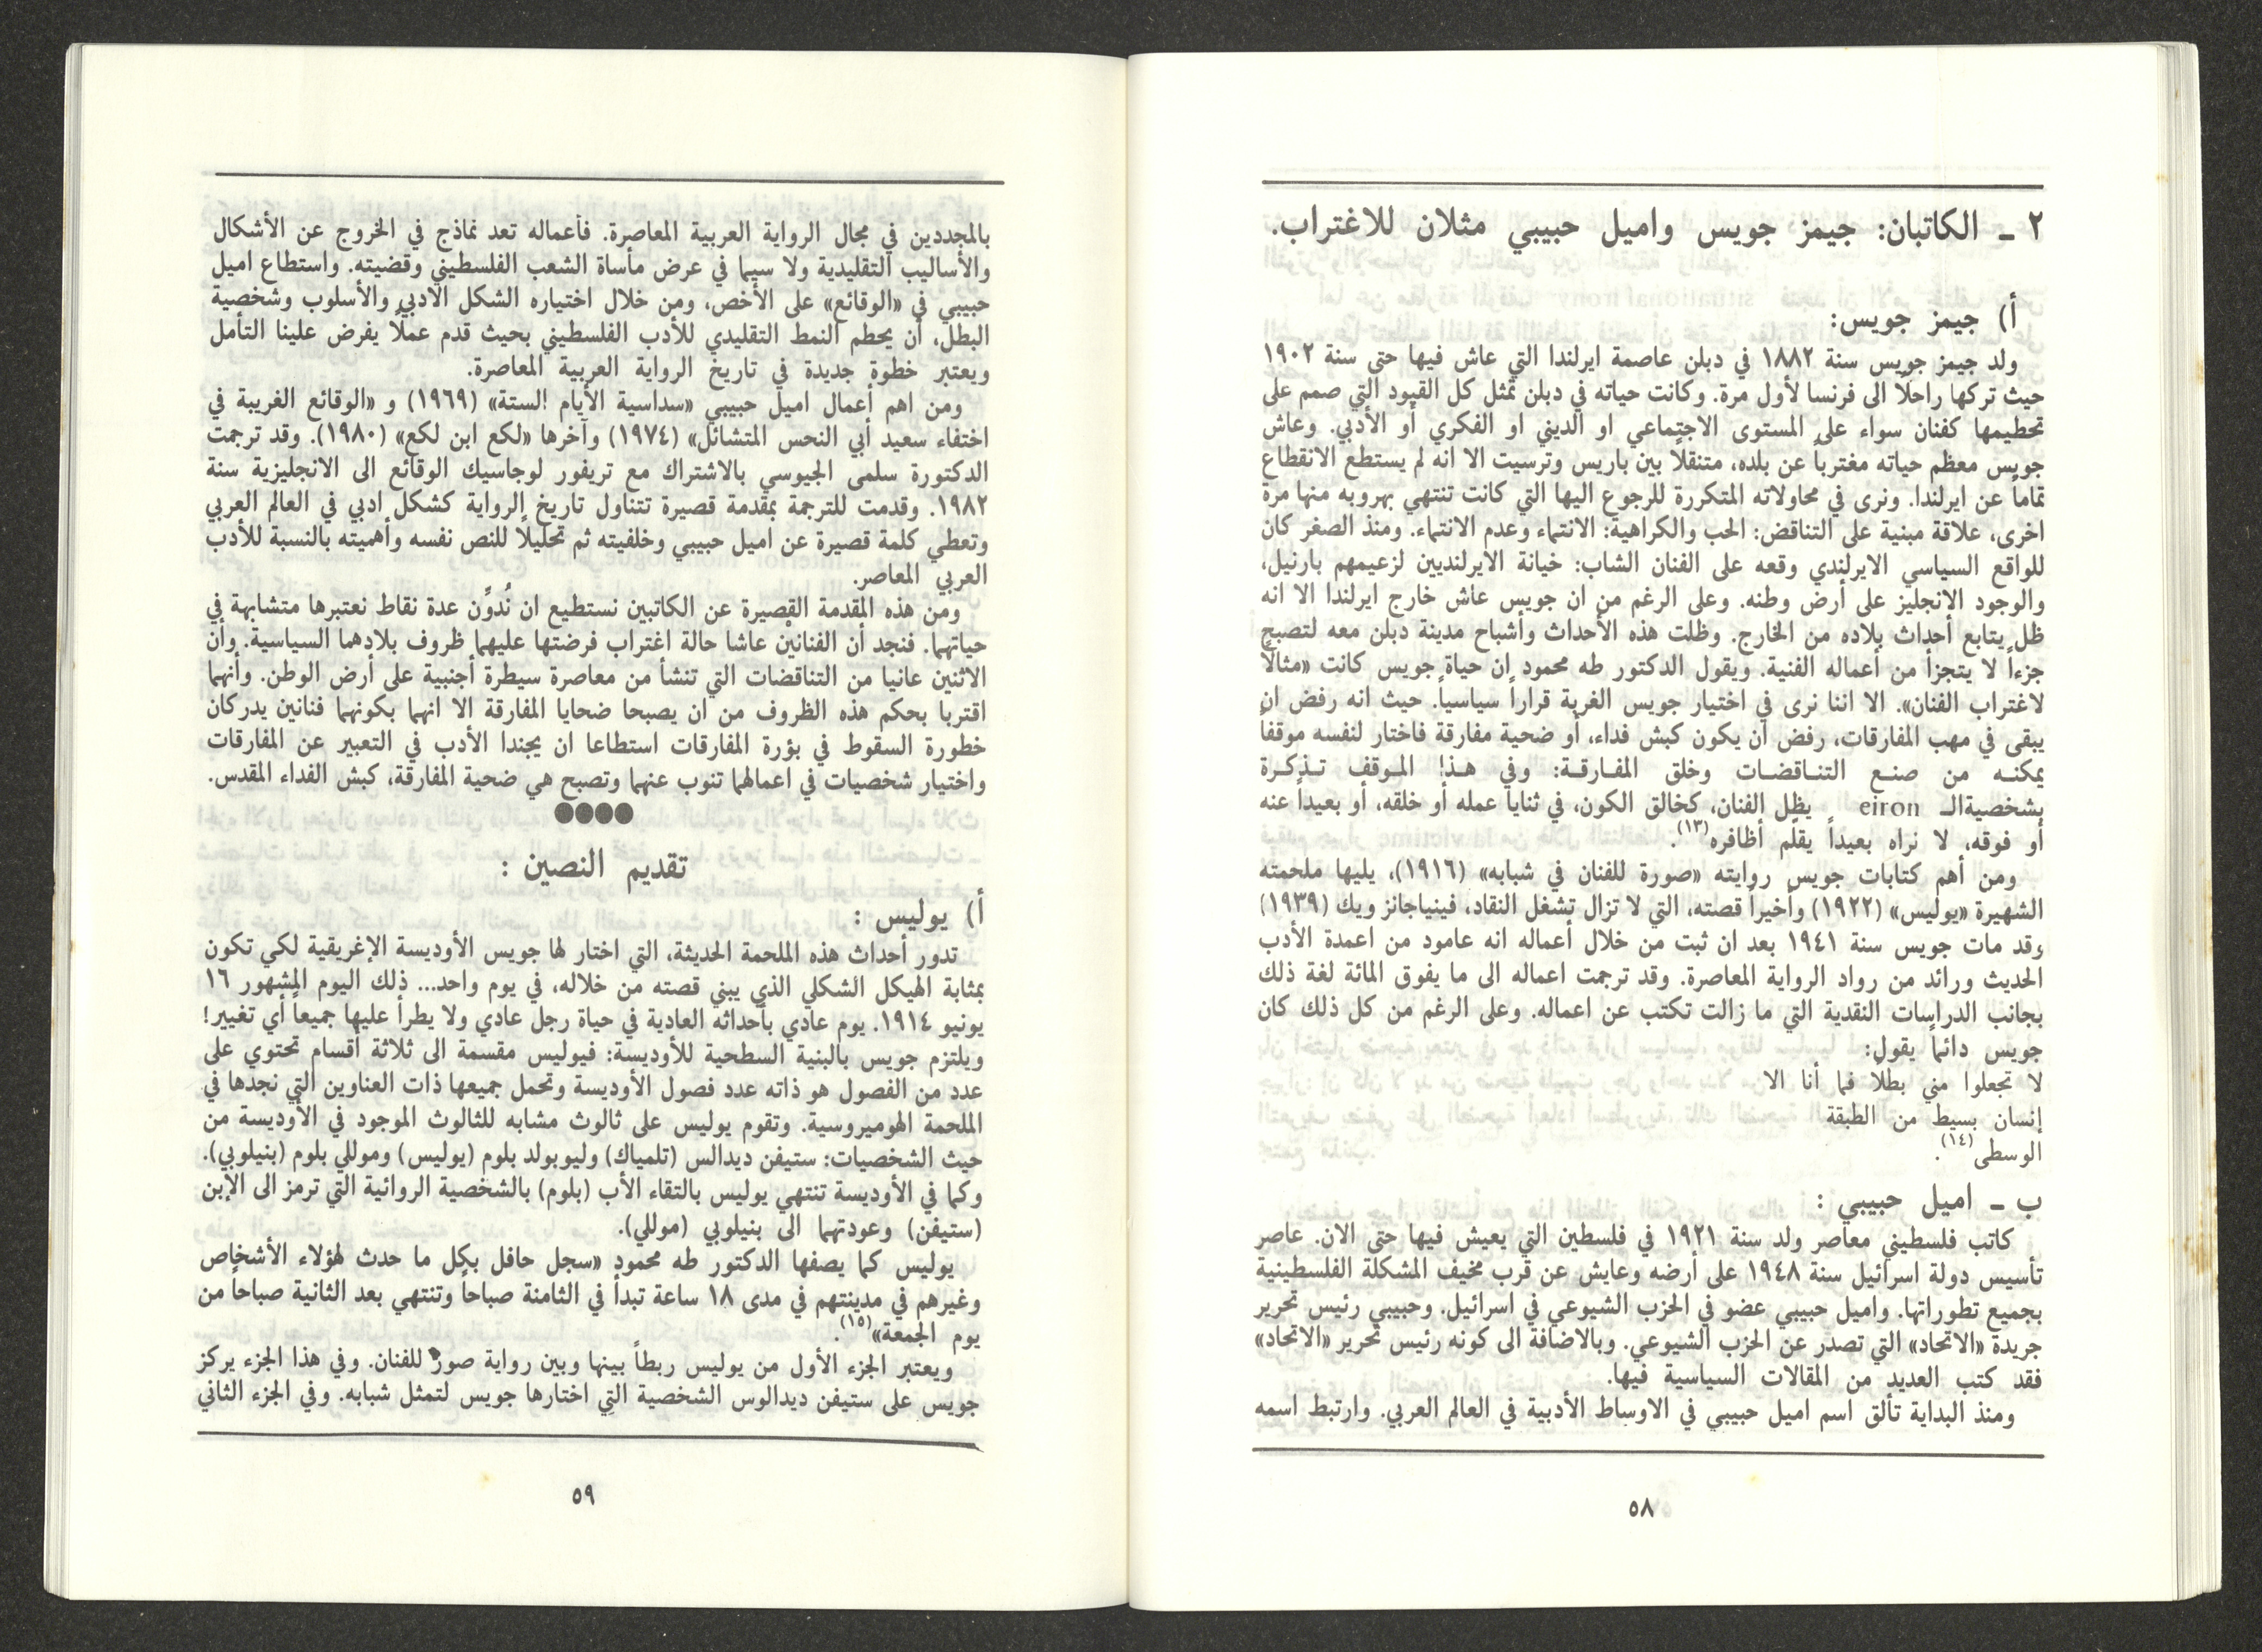 ٢ ـ الكاتبان: جيمز جويس واميل حبيبي مثلان للاغتراب.
أ) جيمز جويس:
ولد جيمز جويس سنة ١٨٨٢ في دبلن عاصمة ايرلندا التي عاش فيها حتى سنة ١٩٠٢
حيث تركها راحلًا الى فرنسا لأول مرة. وكانت حياته في دبلن تمثل كل القيود التي صمم على
تحطيمها كفنان سواء على المستوى الاجتماعي او الديني او الفكري أو الأدبي. وعاش
جويس معظم حياته مغترباً عن بلده، متنقلاً بين باريس وترسيت الا انه لم يستطع الانقطاع
تماماً عن ايرلندا. ونرى في محاولاته المتكررة للرجوع اليها التي كانت تنتهي بهروبه منها مرة
اخرى، علاقة مبنية على التناقض: الحب والكراهية: الانتماء وعدم الانتماء. ومنذ الصغر كان
للواقع السياسي الايرلندي وقعه على الفنان الشاب: خيانة الايرلنديين لزعيمهم بارنيل،
والوجود الانجليز على أرض وطنه. وعلى الرغم من ان جويس عاش خارج ايرلندا الا انه
ظل يتابع أحداث بلاده من الخارج. وظلت هذه الأحداث وأشباح مدينة دبلن معه لتصبح
جزءاً لا يتجزأ من أعماله الفنية. ويقول الدكتور طه محمود ان حياة جويس كانت «مثالاً
لاغتراب الفنان». الا اننا نرى في اختيار جويس الغربة قراراً سياسياً. حيث انه رفض ان
يبقى في مهب المفارقات، رفض أن يكون كبش فداء، أو ضحية مفارقة فاختار لنفسه موقفاً
يمكنه من صنع التناقضات وخلق المفارقة: وفي هذا الموقف تذكرة
بشخصيةالـ eiron يظل الفنان، كخالق الكون، في ثنايا عمله أو خلقه، أو بعيداً عنه
أو فوقه، لا نراه بعيداً يقلّم أظافره(١٣).
ومن أهم كتابات جويس روايته «صورة للفنان في شبابه» (١٩١٦)، يليها ملحمته
الشهيرة «يوليس» (١٩٢٢) وأخيراً قصته، التي لا تزال تشغل النقاد، فينياجانز ويك (١٩٣٩)
وقد مات جويس سنة ١٩٤١ بعد ان ثبت من خلال أعماله انه عامود من اعمدة الأدب
الحديث ورائد من رواد الرواية المعاصرة. وقد ترجمت اعماله الى ما يفوق المائة لغة ذلك
بجانب الدراسات النقدية التي ما زالت تكتب عن اعماله. وعلى الرغم من كل ذلك كان
جويس دائماً يقول:
لا تجعلوا مني بطلًا فما أنا الا
إنسان بسيط من الطبقة
الوسطى(١٤).
ب ـ اميل حبيبي :
كاتب فلسطيني معاصر ولد سنة ١٩٢١ في فلسطين التي يعيش فيها حتى الان. عاصر
تأسيس دولة اسرائيل سنة ١٩٤٨ على أرضه وعايش عن قرب مخيف المشكلة الفلسطينية
بجميع تطوراتها. واميل حبيبي عضو في الحزب الشيوعي في اسرائيل. وحبيبي رئيس تحرير
جريدة «الاتحاد» التي تصدر عن الحزب الشيوعي. وبالاضافة الى كونه رئيس تحرير «الاتحاد»
فقد كتب العديد من المقالات السياسية فيها.
ومنذ البداية تألق اسم اميل حبيبي في الاوساط الأدبية في العالم العربي. وارتبط اسمه
٥٨
بالمجددين في مجال الرواية العربية المعاصرة. فأعماله تعد نماذج في الخروج عن الأشكال
والأساليب التقليدية ولا سيما في عرض مأساة الشعب الفلسطيني وقضيته. واستطاع اميل
حبيبي في «الوقائع» على الأخص، ومن خلال اختياره الشكل الادبي والأسلوب وشخصية
البطل، أن يحطم النمط التقليدي للأدب الفلسطيني بحيث قدم عملاً يفرض علينا التأمل
ويعتبر خطوة جديدة في تاريخ الرواية العربية المعاصرة.
ومن اهم أعمال اميل حبيبي «سداسية الأيام الستة» (١٩٦٩) و «الوقائع الغريبة في
اختفاء سعيد أبي النحس المتشائل» (١٩٧٤) وآخرها «لكع ابن لكع» (١٩٨٠). وقد ترجمت
الدكتورة سلمى الجيوسي بالاشتراك مع تريفور لوجاسيك الوقائع الى الانجليزية سنة
١٩٨٢. وقدمت للترجمة بمقدمة قصيرة تتناول تاريخ الرواية كشكل ادبي في العالم العربي
وتعطي كلمة قصيرة عن اميل حبيبي وخلفيته ثم تحليلاً للنص نفسه وأهميته بالنسبة للأدب
العربي المعاصر.
ومن هذه المقدمة القصيرة عن الكاتبين نستطيع ان نُدوّن عدة نقاط نعتبرها متشابهة في
حياتهما. فنجد أن الفنانيْن عاشا حالة اغتراب فرضتها عليهما ظروف بلادهما السياسية. وأن
الاثنين عانيا من التناقضات التي تنشأ من معاصرة سيطرة أجنبية على أرض الوطن. وأنهما
اقتربا بحكم هذه الظروف من ان يصبحا ضحايا المفارقة الا انهما بكونهما فنانين يدركان
خطورة السقوط في بؤرة المفارقات استطاعا ان يجندا الأدب في التعبير عن المفارقات
واختيار شخصيات في اعمالهما تنوب عنهما وتصبح هي ضحية المفارقة، كبش الفداء المقدس.
تقديم النصين :
أ) يوليس :
تدور أحداث هذه الملحمة الحديثة، التي اختار لها جويس الأوديسة الإغريقية لكي تكون
بمثابة الهيكل الشكلي الذي يبني قصته من خلاله، في يوم واحد... ذلك اليوم المشهور ١٦
يونيو ١٩١٤. يوم عادي بأحداثه العادية في حياة رجل عادي ولا يطرأ عليها جميعاً أي تغيير!
ويلتزم جويس بالبنية السطحية للأوديسة: فيوليس مقسمة الى ثلاثة أقسام تحتوي على
عدد من الفصول هو ذاته عدد فصول الأوديسة وتحمل جميعها ذات العناوين التي نجدها في
الملحمة الهوميروسية. وتقوم يوليس على ثالوث مشابه للثالوث الموجود في الأوديسة من
حيث الشخصيات: ستيفن ديدالس (تلمياك) وليوبولد بلوم (يوليس) وموللي بلوم (بنيلوبي).
وكما في الأوديسة تنتهي يوليس بالتقاء الأب (بلوم) بالشخصية الروائية التي ترمز الى الإبن
(ستيفن) وعودتهما الى بنيلوبي (موللي).
يوليس كما يصفها الدكتور طه محمود «سجل حافل بكل ما حدث لهؤلاء الأشخاص
وغيرهم في مدينتهم في مدى ١٨ ساعة تبدأ في الثامنة صباحاً وتنتهي بعد الثانية صباحاً من
يوم الجمعة»(١٥).
ويعتبر الجزء الأول من يوليس ربطاً بينها وبين رواية صور للفنان. وفي هذا الجزء يركز
جويس على ستيفن ديدالوس الشخصية التي اختارها جويس لتمثل شبابه. وفي الجزء الثاني
٥٩